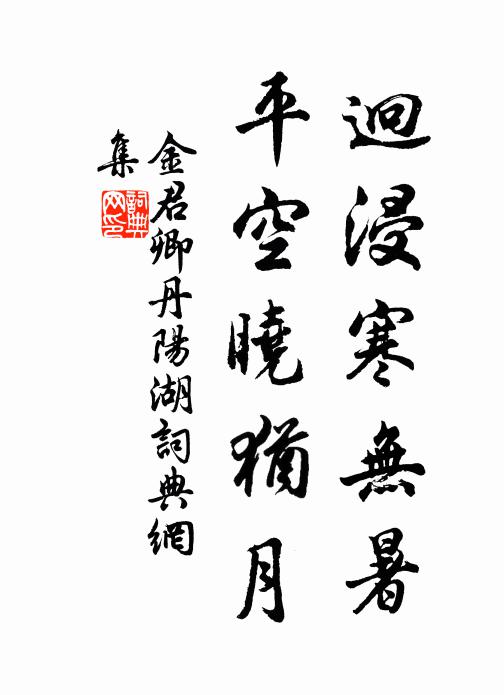 迥浸寒無暑
平空曉猶月
金君卿丹陽湖詞典網
集
詞典
网印